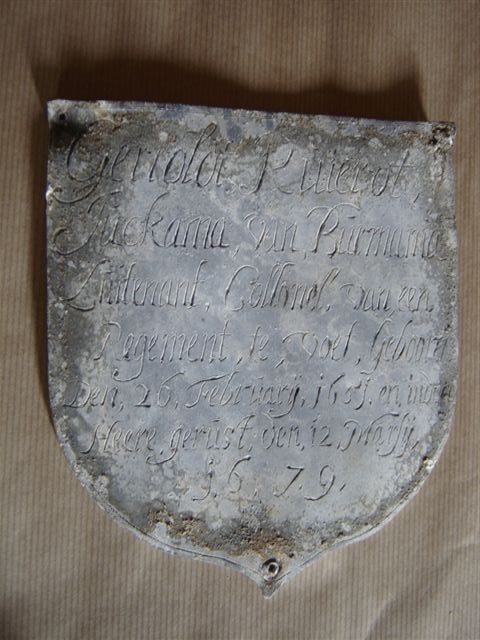 Gerroldt, Ruierdt,
Juckama, van, Burmania
Luitenant, Collonel, van, een
Regement, te, voet, Gebooren
Den, 26, Februarij, 1651. en, in den
Heere, gerust, den, 12, Martij,
1.6.7.9.